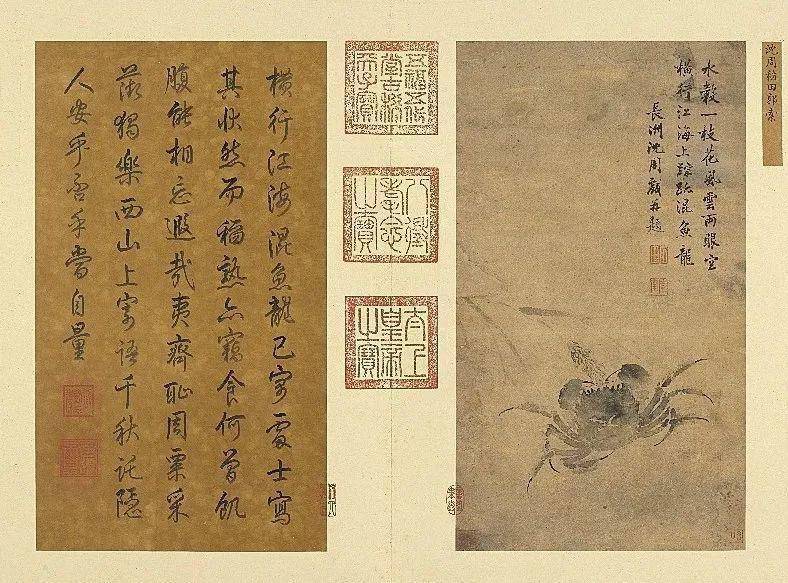 沈周稻田郭索
水穀一枝花風雲兩眼空
橫行江海上踪跡混魚龍
長洲沈周戲并題
五福五代堂古稀天子寶
八徵耄念之寶
太上皇帝之寶
橫行江海混魚龍已寄處士寫
其狀然而稻熟亦竊食何曾飢
腹能相忘遐哉夷齊恥周粟采
薇獨樂西山上寄語千秋託隱
人安乎否乎當自量